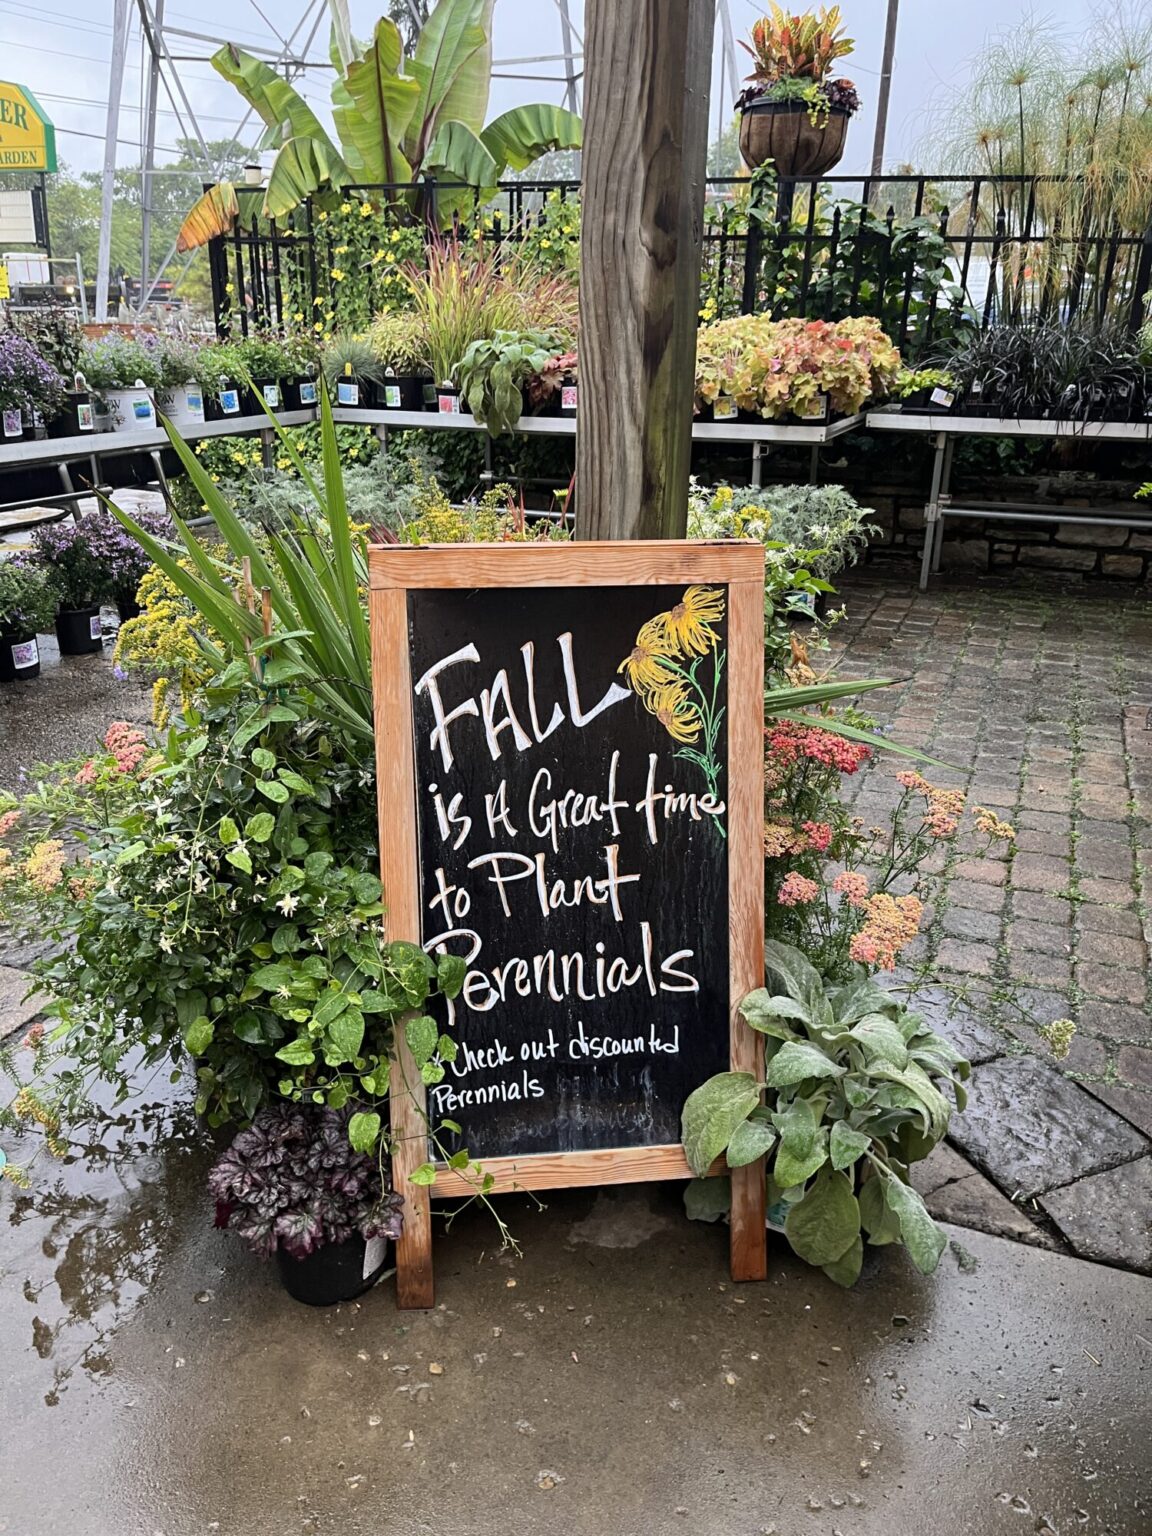 ER
&
ARDEN
FALL
is A Great time
to Plant
Perennials
* Check out discounted
Perennials